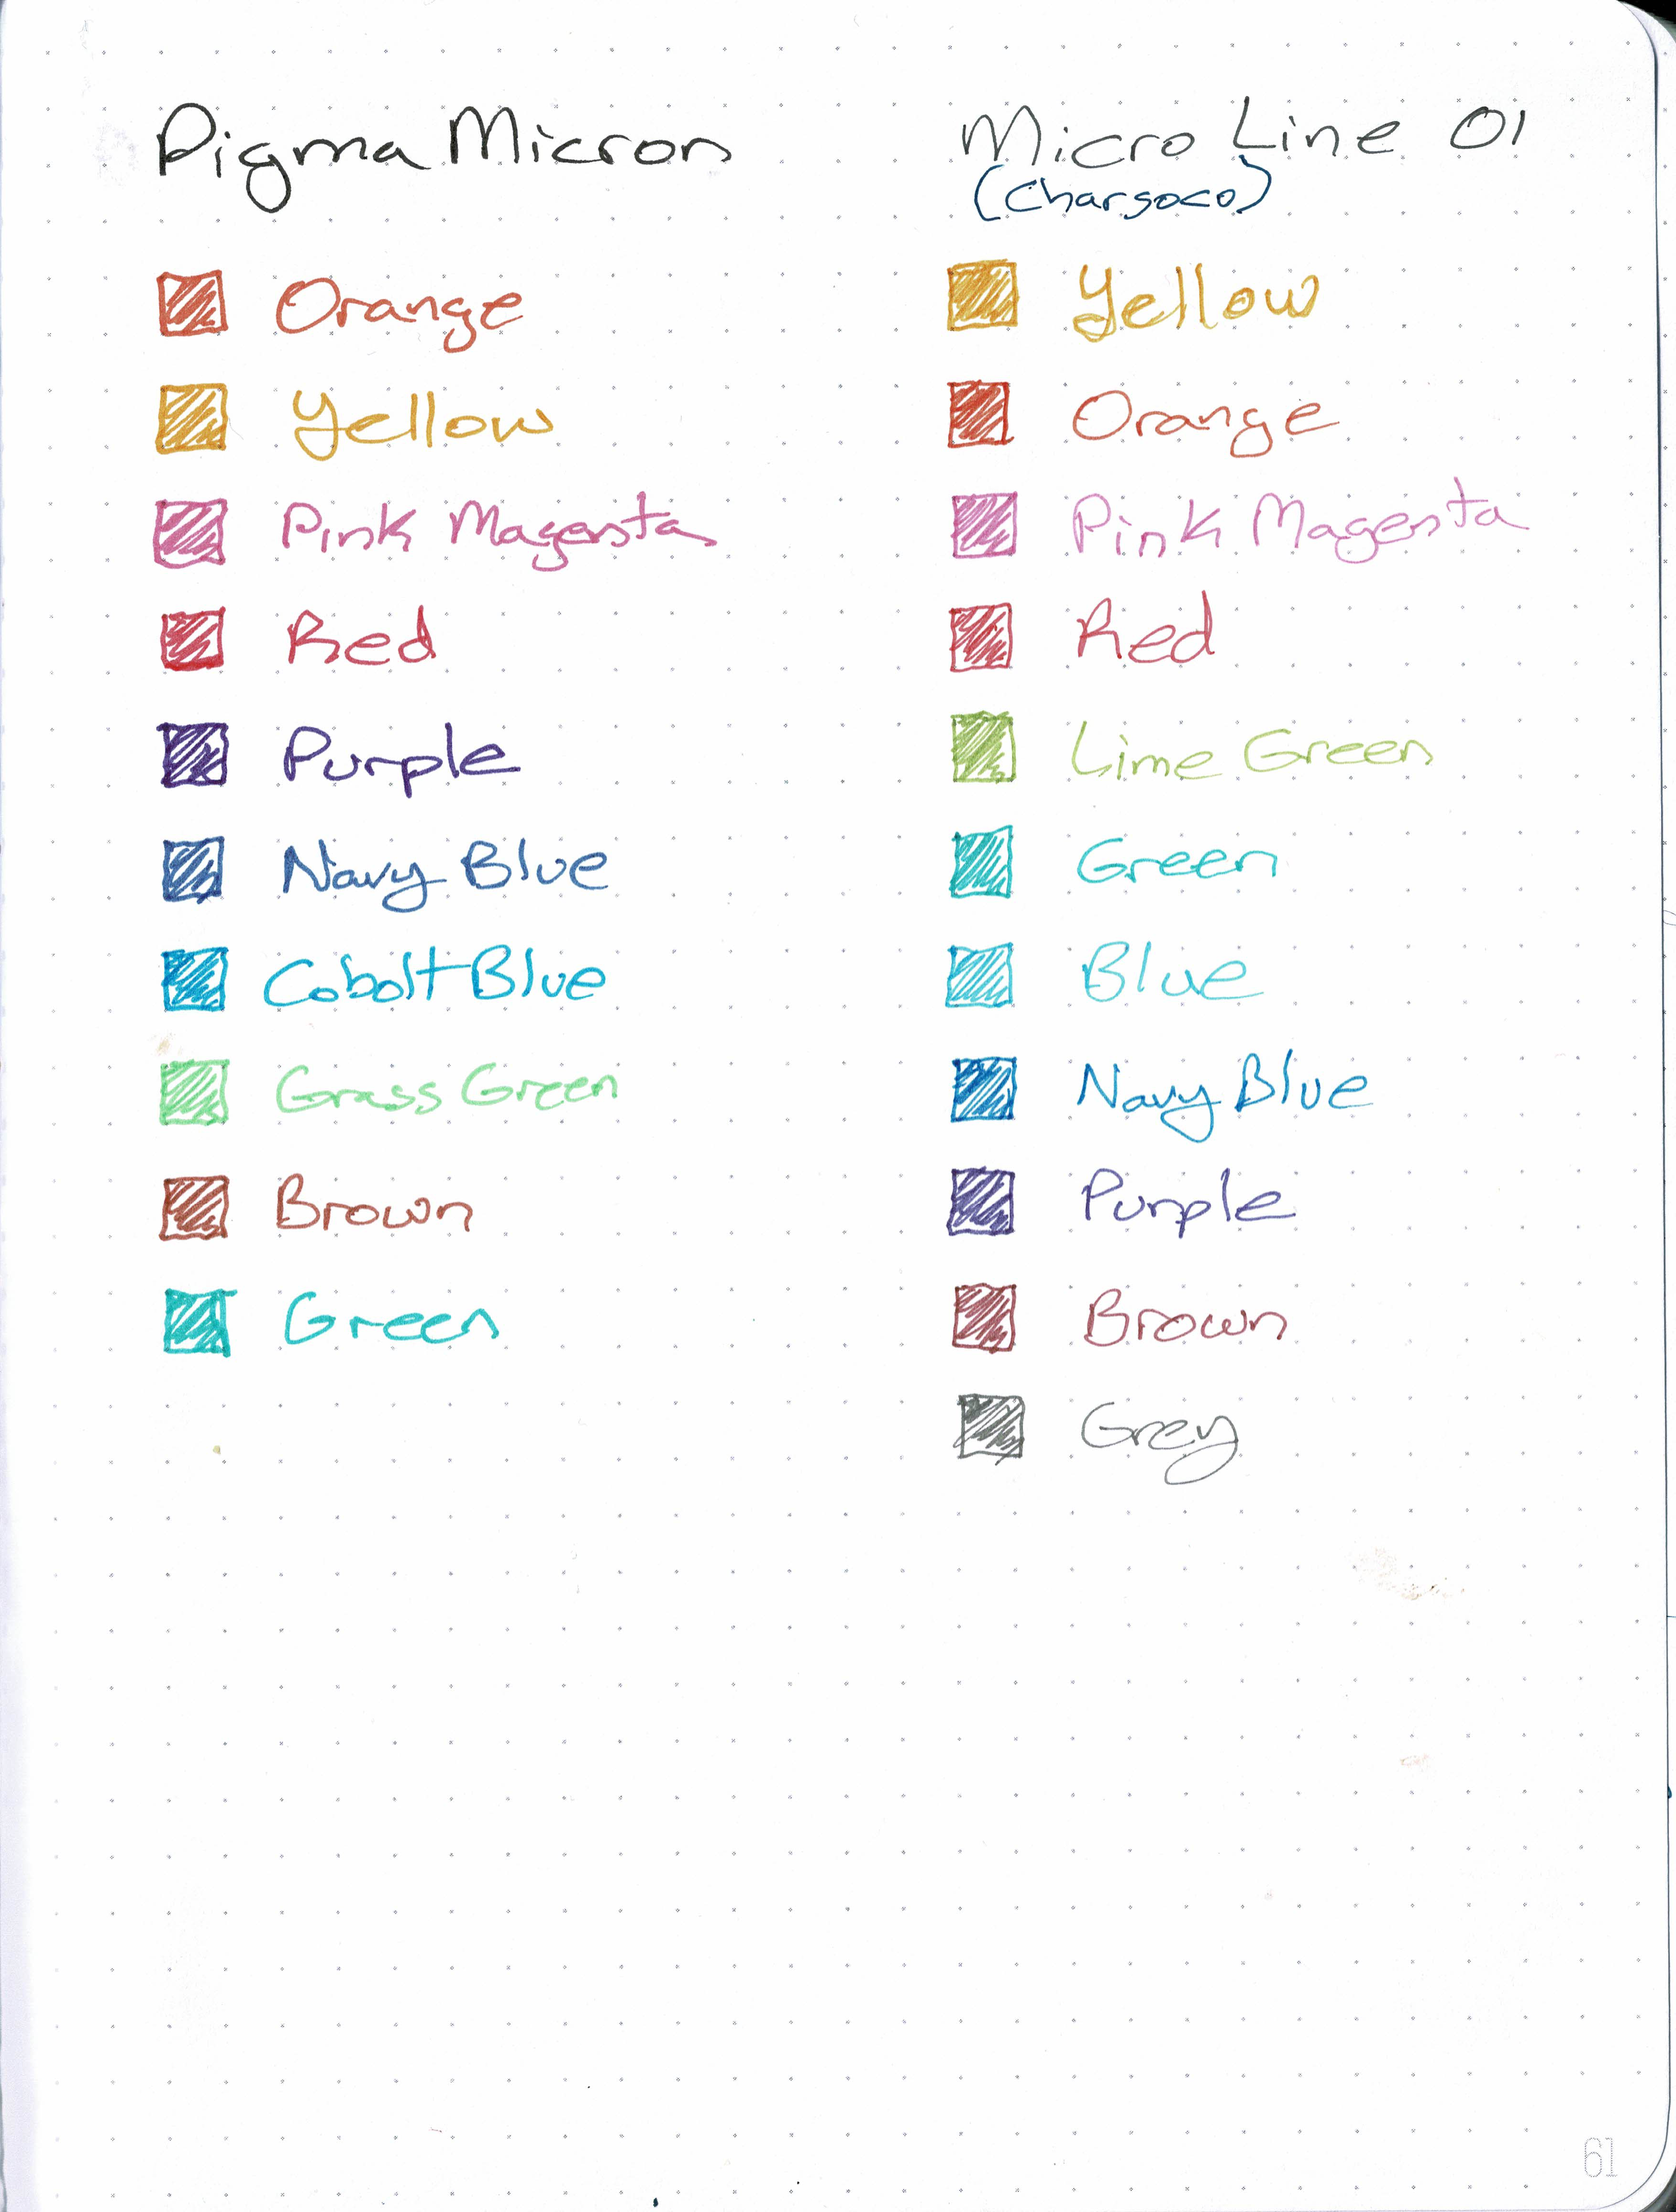 Pigma Micron
Orange
Yellow
Pink Magenta
Red
Purple
Navy Blue
Cobolt Blue
Grass Green
Brown
Green
Micro Line 01
(Chargoco)
Yellow
Orange
Pink Magenta
Red
Lime Green
Green
Blue
Navy Blue
Purple
Brown
Grey
61